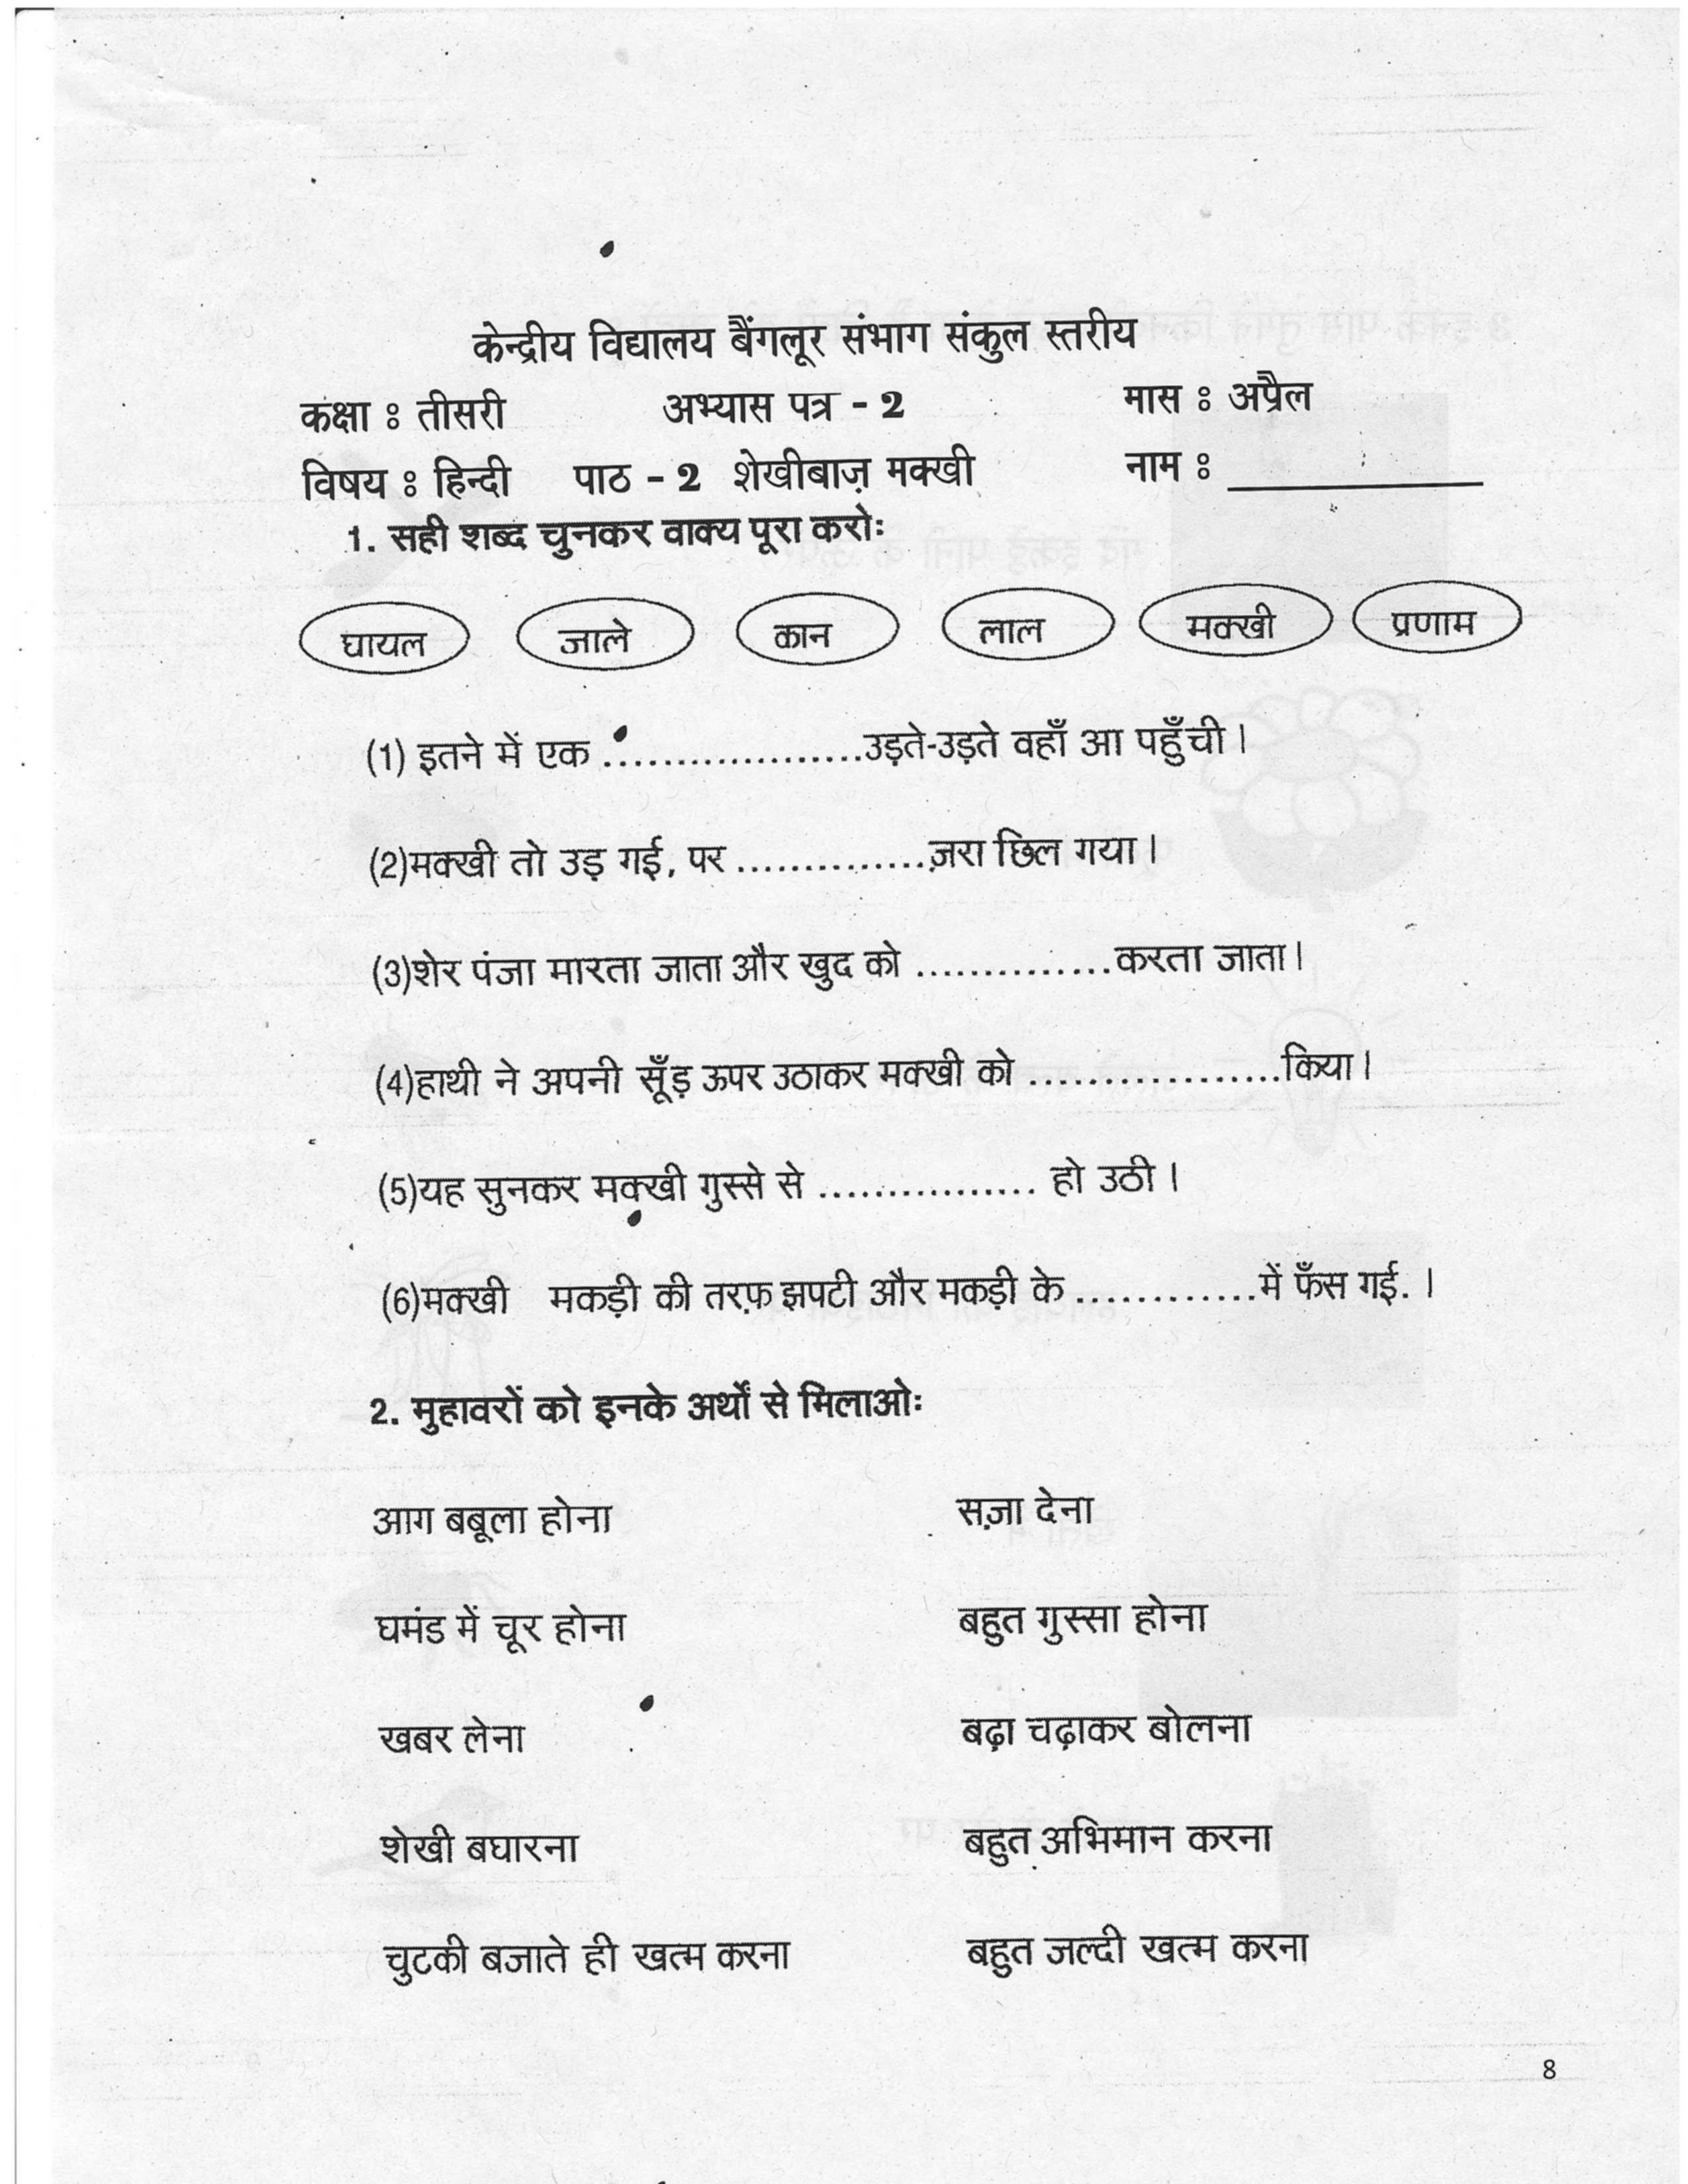 केन्द्रीय विद्यालय बैंगलूर संभाग संकुल स्तरीय
कक्षा : तीसरी अभ्यास पत्र - 2 मास : अप्रैल
विषय : हिन्दी पाठ - 2 शेखीबाज़ मक्खी नाम : __________
1. सही शब्द चुनकर वाक्य पूरा करो:
घायल जाले कान लाल मक्खी प्रणाम
(1) इतने में एक ...................उड़ते-उड़ते वहाँ आ पहुँची।
(2)मक्खी तो उड़ गई, पर ..............ज़रा छिल गया।
(3)शेर पंजा मारता जाता और खुद को ..............करता जाता।
(4)हाथी ने अपनी सूँड़ ऊपर उठाकर मक्खी को ..................किया।
(5)यह सुनकर मक्खी गुस्से से ................ हो उठी।
(6)मक्खी मकड़ी की तरफ़ झपटी और मकड़ी के .............में फँस गई. ।
2. मुहावरों को इनके अर्थों से मिलाओ:
आग बबूला होना सज़ा देना
घमंड में चूर होना बहुत गुस्सा होना
खबर लेना बढ़ा चढ़ाकर बोलना
शेखी बघारना बहुत अभिमान करना
चुटकी बजाते ही खत्म करना बहुत जल्दी खत्म करना
8